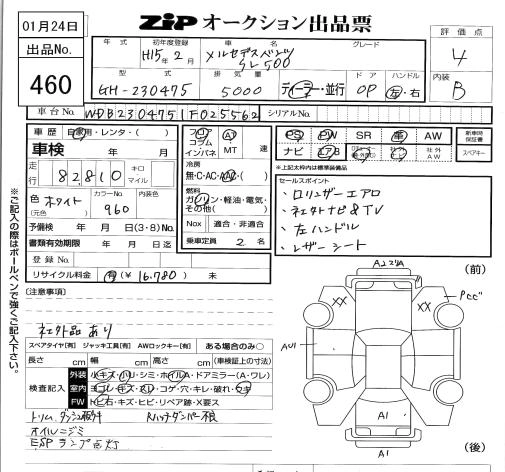 01月24日
出品No.
460
ZIP オークション出品票
評価点
4
内装
B
年式 初年度登録 車名 グレード
H15年2月 メルセデスベンツ
SL500
型式 排気量 ドア ハンドル
GH-230475 5000 ディーラー・並行 OP 左・右
車台No. WDB2304751F025562 シリアルNo.
車歴 自家用・レンタ・( )
車検 年 月
走行 82,810 キロ マイル
色 ホワイト カラーNo. 960 内装色
(元色)
予備検 年 月 日(3・8)No.
書類有効期限 年 月 日迄
登録No.
リサイクル料金 有(¥16,780) 未
フロア コラム インパネ AT MT 速
冷房
無・C・AC・AAC・( )
燃料
ガソリン・軽油・電気・その他( )
Nox 適合・非適合
乗車定員 2 名
PS PW SR 革 AW
ナビ エアB 社外 AW
新車時保証書
スペアキー
*上記太枠内は標準装備品
セールスポイント
・ロリンザーエアロ
・社外ナビ&TV
・左ハンドル
・レザーシート
※ご記入の際はボールペンで強くご記入下さい。
[注意事項]
社外品あり
スペアタイヤ[有] ジャッキ工具[有] AWロックキー[有] ある場合のみ〇
長さ cm 幅 cm 高さ cm (車検証上の寸法)
検査記入
外装 小キズ・ハリ・シミ・ホイルA・ドアミラー(A・ワレ)
室内 ヨゴレ・キズ・スレ・コゲ・穴・キレ・破れ・ウキ
FW トビ石・キズ・ヒビ・リペア跡・X要ス
トリム、ダッシュ板ウキ Rハッチダンパー不良
オイルニジミ
ESPランプ点灯
(前)
XX
XX
AU1
A1
A1
(後)